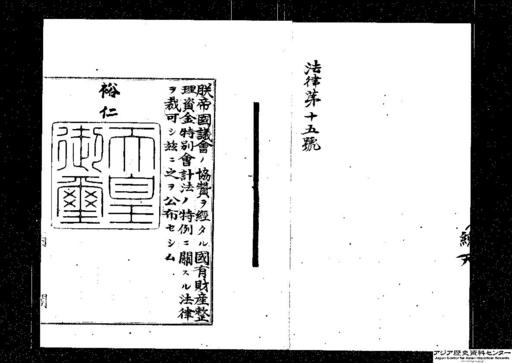 法律第十五號
朕帝國議會ノ協贊ヲ經タル國有財産整
理資金特別會計法ノ特例ニ關スル法律
ヲ裁可シ茲ニ之ヲ公布セシム
裕仁
天皇御璽
アジア歴史資料センター
Japan Center for Asian Historical Records